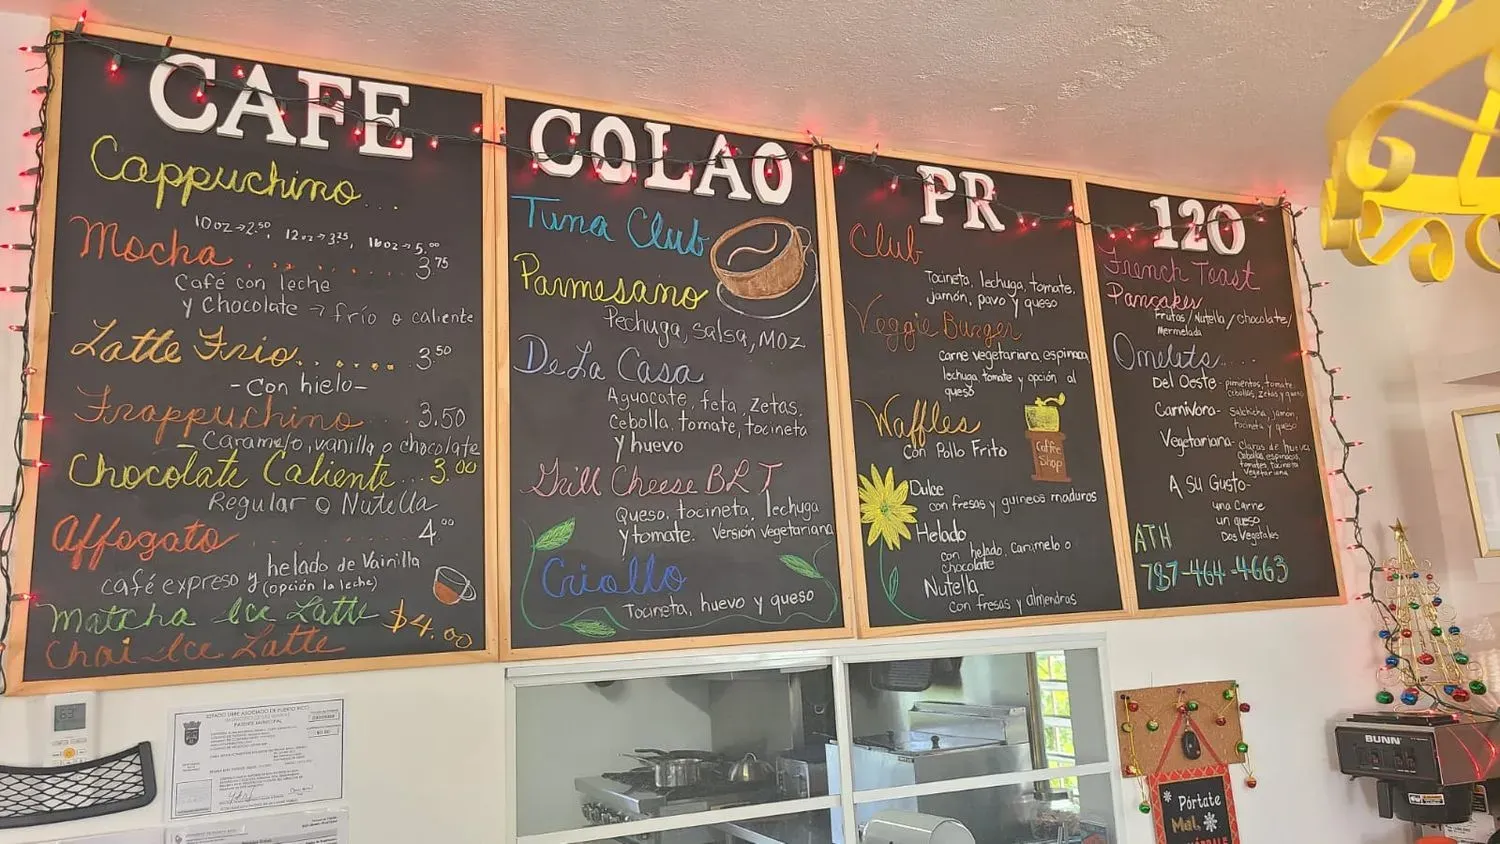 CAFE
Cappuchino...
10oz→2.50, 12oz→3.25, 16oz→5.00
Mocha ....... 3.75
Café con leche
y Chocolate → frío o caliente
Latte Frio....... 3.50
-Con hielo-
Frappuchino 3.50
- Caramelo, vanilla o chocolate
Chocolate Caliente...3.00
Regular o Nutella
Affogato ....... 4.00
helado de Vainilla
café expreso y (opción la leche)
Matcha Ice Latte $4.00
Chai Ice Latte
COLAO
Tuna Club
Parmesano
Pechuga, salsa, MOZ
De La Casa
Aguacate, feta, zetas,
Cebolla, tomate, tocineta
y huevo
Grill Cheese BLT
Queso, tocineta, lechuga
y tomate. Versión vegetariana
Criollo
Tocineta, huevo y queso
PR
Club
Tocineta, lechuga, tomate,
jamón, pavo y queso
Veggie Burger
Carne vegetariana, espinaca,
lechuga, tomate y opción al
queso
Waffles
Con Pollo Frito
Coffee
Shop
Dulce
con fresas y guineos maduros
Helado
con helado, Caramelo o
chocolate
Nutella
con fresas y almendras
120
French Toast
Pancakes
Frutos / Nutella / chocolate/
Mermelada
Omelets....
Del Oeste- pimientos, tomate,
Cebollas, zetas y queso
Carnivora- Salchicha, jamón,
tocineta y queso
Vegetariana- Claras de huevo,
Cebollas, espinacas,
tomates, tocineta
Vegetariana
A Su Gusto-
una Carne
un queso
Dos Vegetales
ATH
787-464-4663
ESTADO LIBRE ASOCIADO DE PUERTO RICO
PATENTE MUNICIPAL
BUNN
Pórtate
Mal,